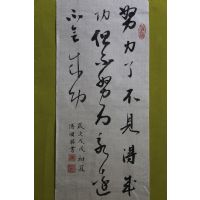 努力了不見得成
功但不努力永遠
不會成功
歲次戊戌初夏